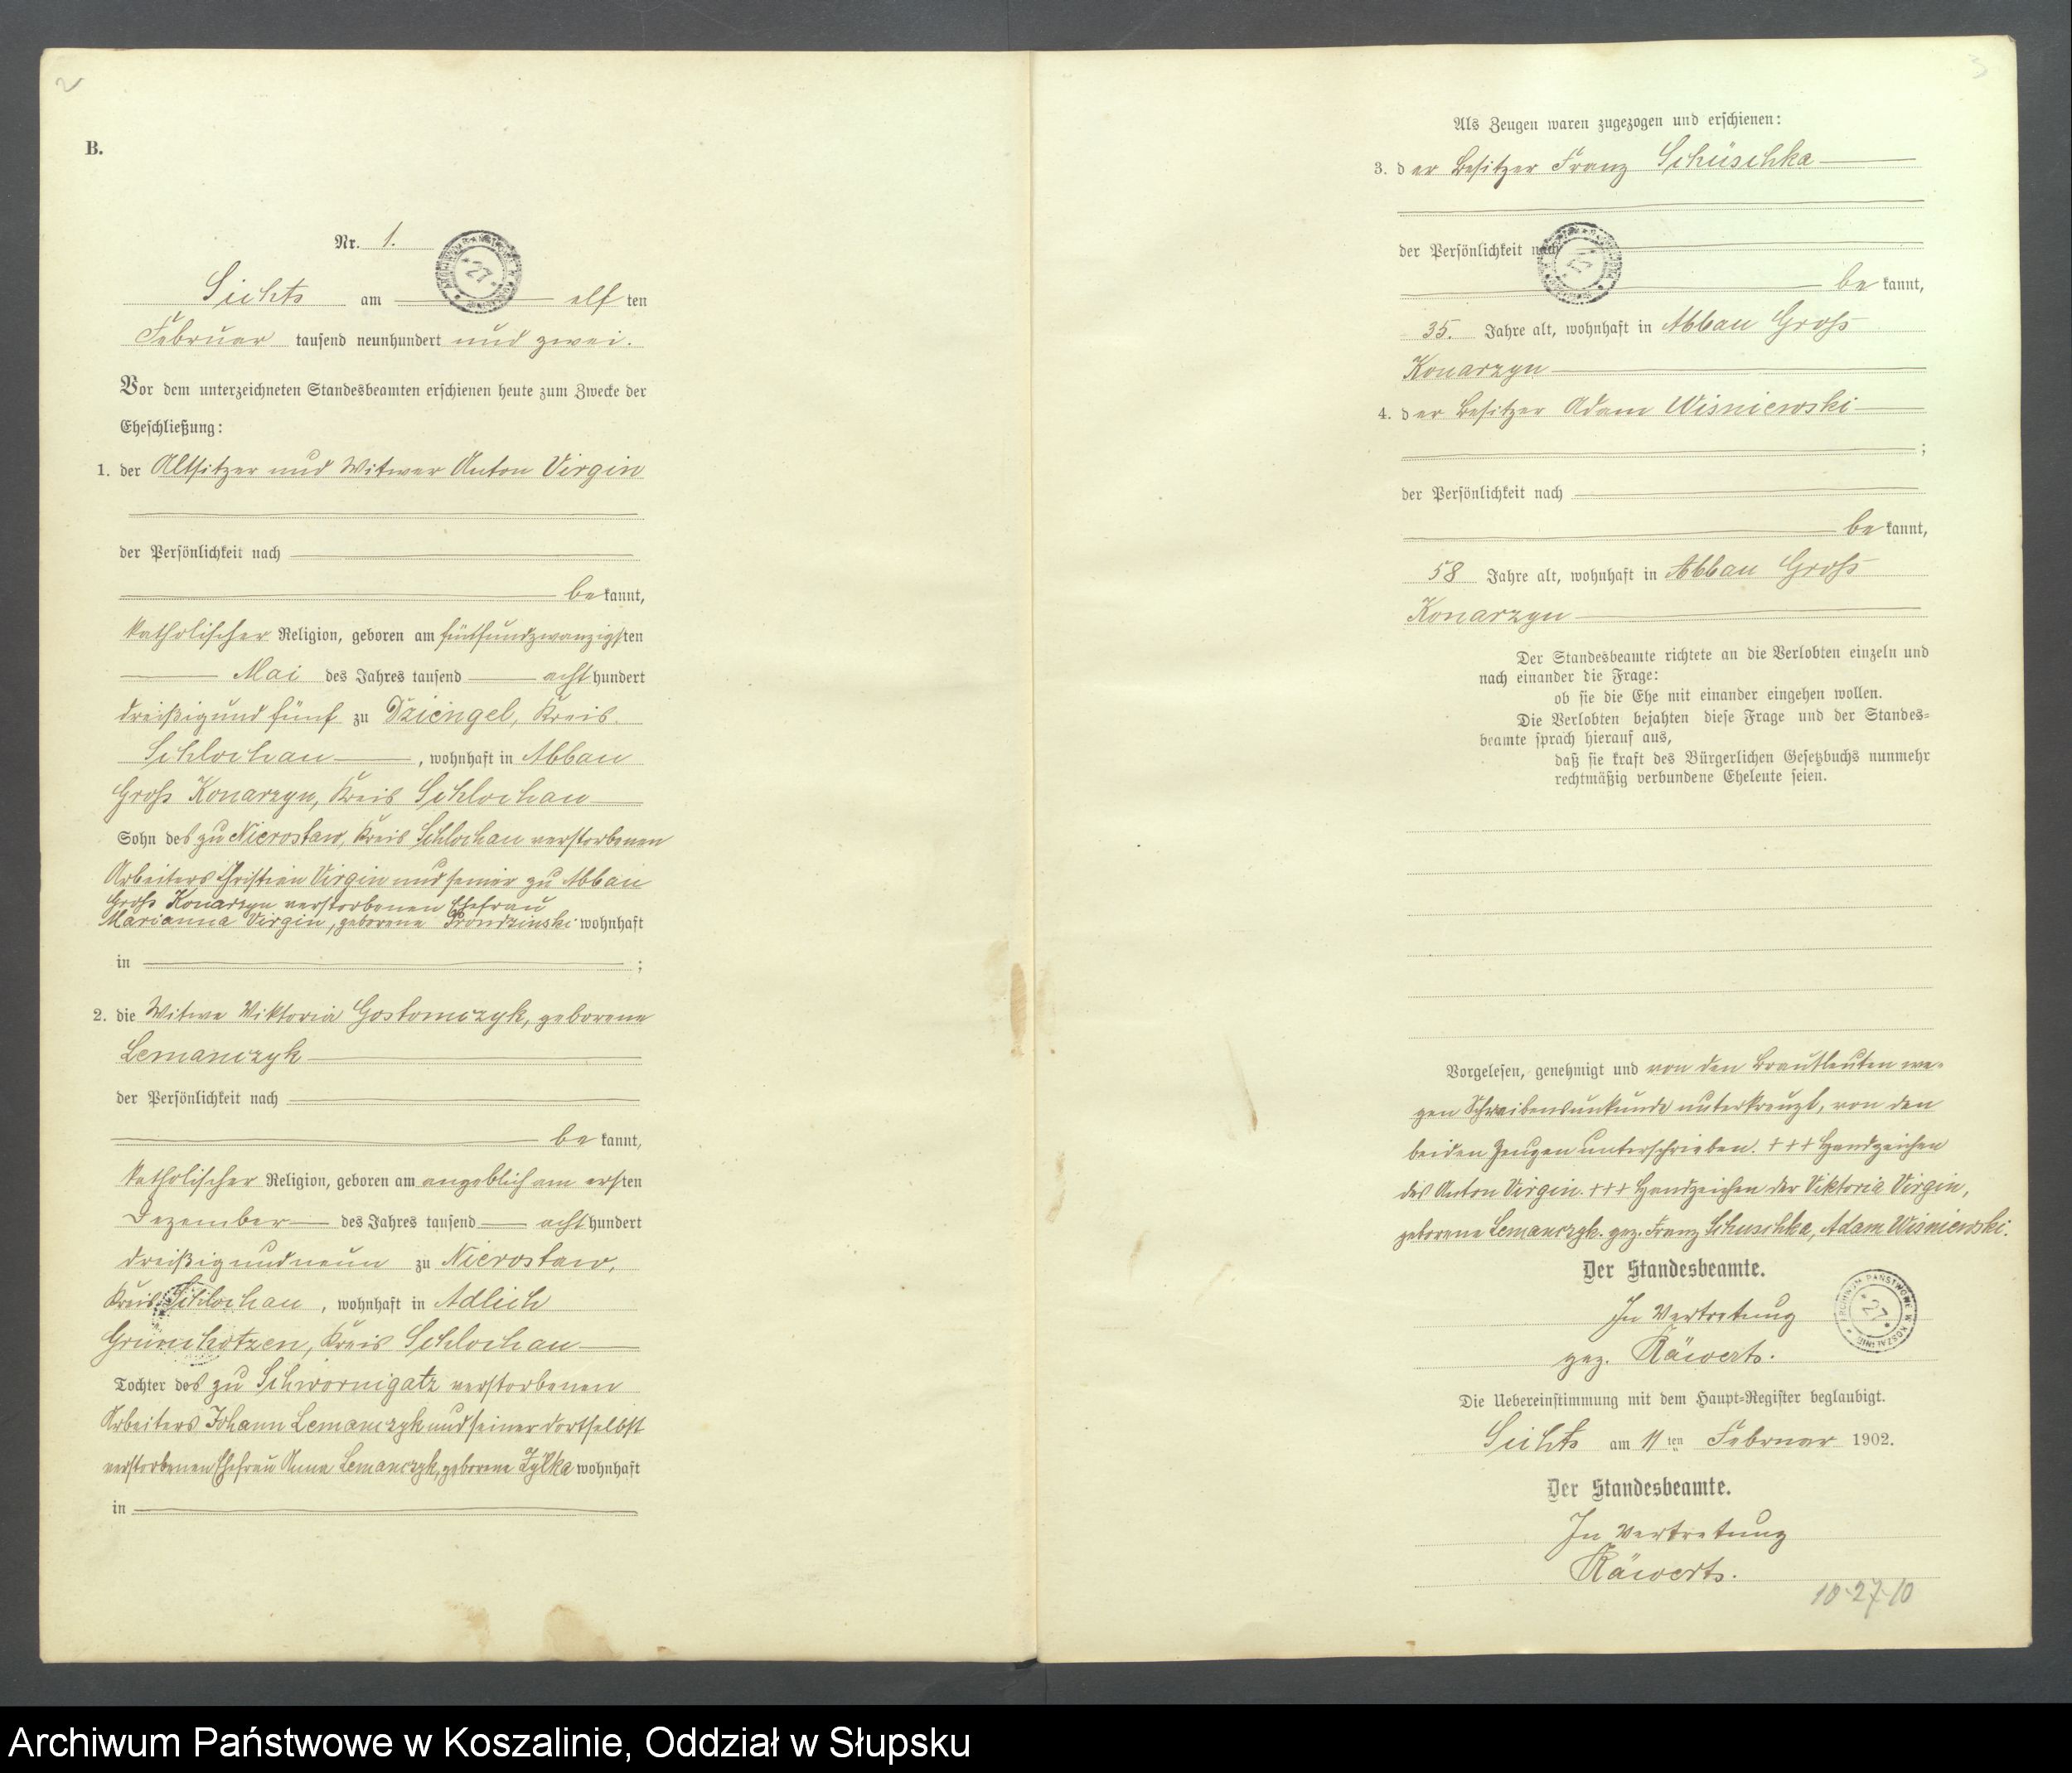 2
B.
Nr. 1.
Sichts am elf ten
Februar tausend neunhundert und zwei.
Vor dem unterzeichneten Standesbeamten erschienen heute zum Zwecke der
Eheschließung:
1. der Altsitzer und Witwer Anton Virgin
der Persönlichkeit nach
be kannt,
katholischer Religion, geboren am fünfundzwanzigsten
Mai des Jahres tausend acht hundert
dreißig und fünf zu Dziengel, Kreis
Schlochau, wohnhaft in Abbau
Groß Konarzyn, Kreis Schlochau
Sohn des zu Nierostaw, Kreis Schlochau verstorbenen
Arbeiters Christian Virgin und seiner zu Abbau
Groß Konarzyn verstorbenen Ehefrau
Marianna Virgin, geborene Prondzinski wohnhaft
in ;
2. die Witwe Viktoria Gostomczyk, geborene
Lemanczyk
der Persönlichkeit nach
be kannt,
katholischer Religion, geboren am angeblich am ersten
Dezember des Jahres tausend acht hundert
dreißig und neun zu Nierostaw,
Kreis Schlochau, wohnhaft in Adlich
Grünchotzen, Kreis Schlochau
Tochter des zu Schwornigatz verstorbenen
Arbeiters Johann Lemanczyk und seiner dortselbst
verstorbenen Ehefrau Anna Lemanczyk, geborene Zylka wohnhaft
in
3
Als Zeugen waren zugezogen und erschienen:
3. der Besitzer Franz Schüschka
der Persönlichkeit nach
be kannt,
35. Jahre alt, wohnhaft in Abbau Groß
Konarzyn
4. der Besitzer Adam Wisniewski
;
der Persönlichkeit nach
be kannt,
58 Jahre alt, wohnhaft in Abbau Groß
Konarzyn
Der Standesbeamte richtete an die Verlobten einzeln und
nach einander die Frage:
ob sie die Ehe mit einander eingehen wollen.
Die Verlobten bejahten diese Frage und der Standes=
beamte sprach hierauf aus,
daß sie kraft des Bürgerlichen Gesetzbuchs nunmehr
rechtmäßig verbundene Eheleute seien.
Vorgelesen, genehmigt und von den Brautleuten we-
gen Schreibensunkunde unterkreuzt, von den
beiden Zeugen unterschrieben. +++ Handzeichen
des Anton Virgin. +++ Handzeichen der Viktoria Virgin,
geborene Lemanczyk. gez. Franz Schuschka, Adam Wisniewski.
Der Standesbeamte.
In Vertretung
gez. Räwerts.
ARCHIWUM PAŃSTWOWE W KOSZALINIE
27
Die Uebereinstimmung mit dem Haupt=Register beglaubigt.
Sichts am 11 ten Februar 1902.
Der Standesbeamte.
In Vertretung
Räwerts.
10-27-10
Archiwum Państwowe w Koszalinie, Oddział w Słupsku